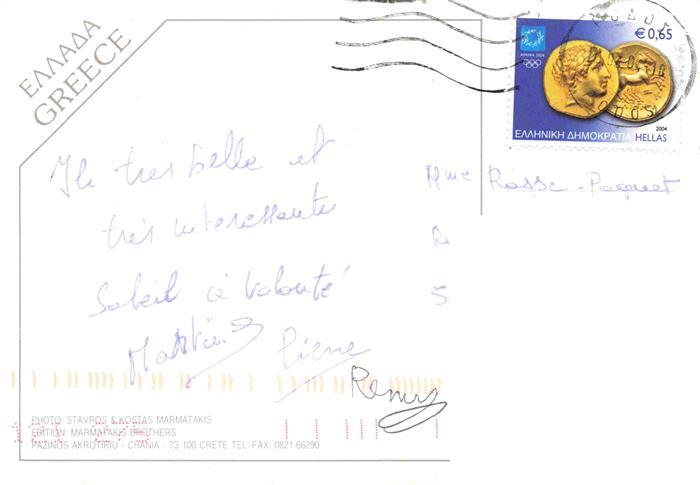 ΕΛΛΑΔΑ
GREECE
ATHENS 2004
€0,65
2004
ΕΛΛΗΝΙΚΗ ΔΗΜΟΚΡΑΤΙΑ HELLAS
Ile très belle et
très interessante
Soleil à volonté
Mme Rosse-Paquet
Remy
PHOTO: STAVROS & KOSTAS MARMATAKIS
EDITION: MARMATAKIS BROTHERS
PAZINOS AKROTIRIU - CHANIA - 73 100 CRETE TEL.-FAX: 0821-66290